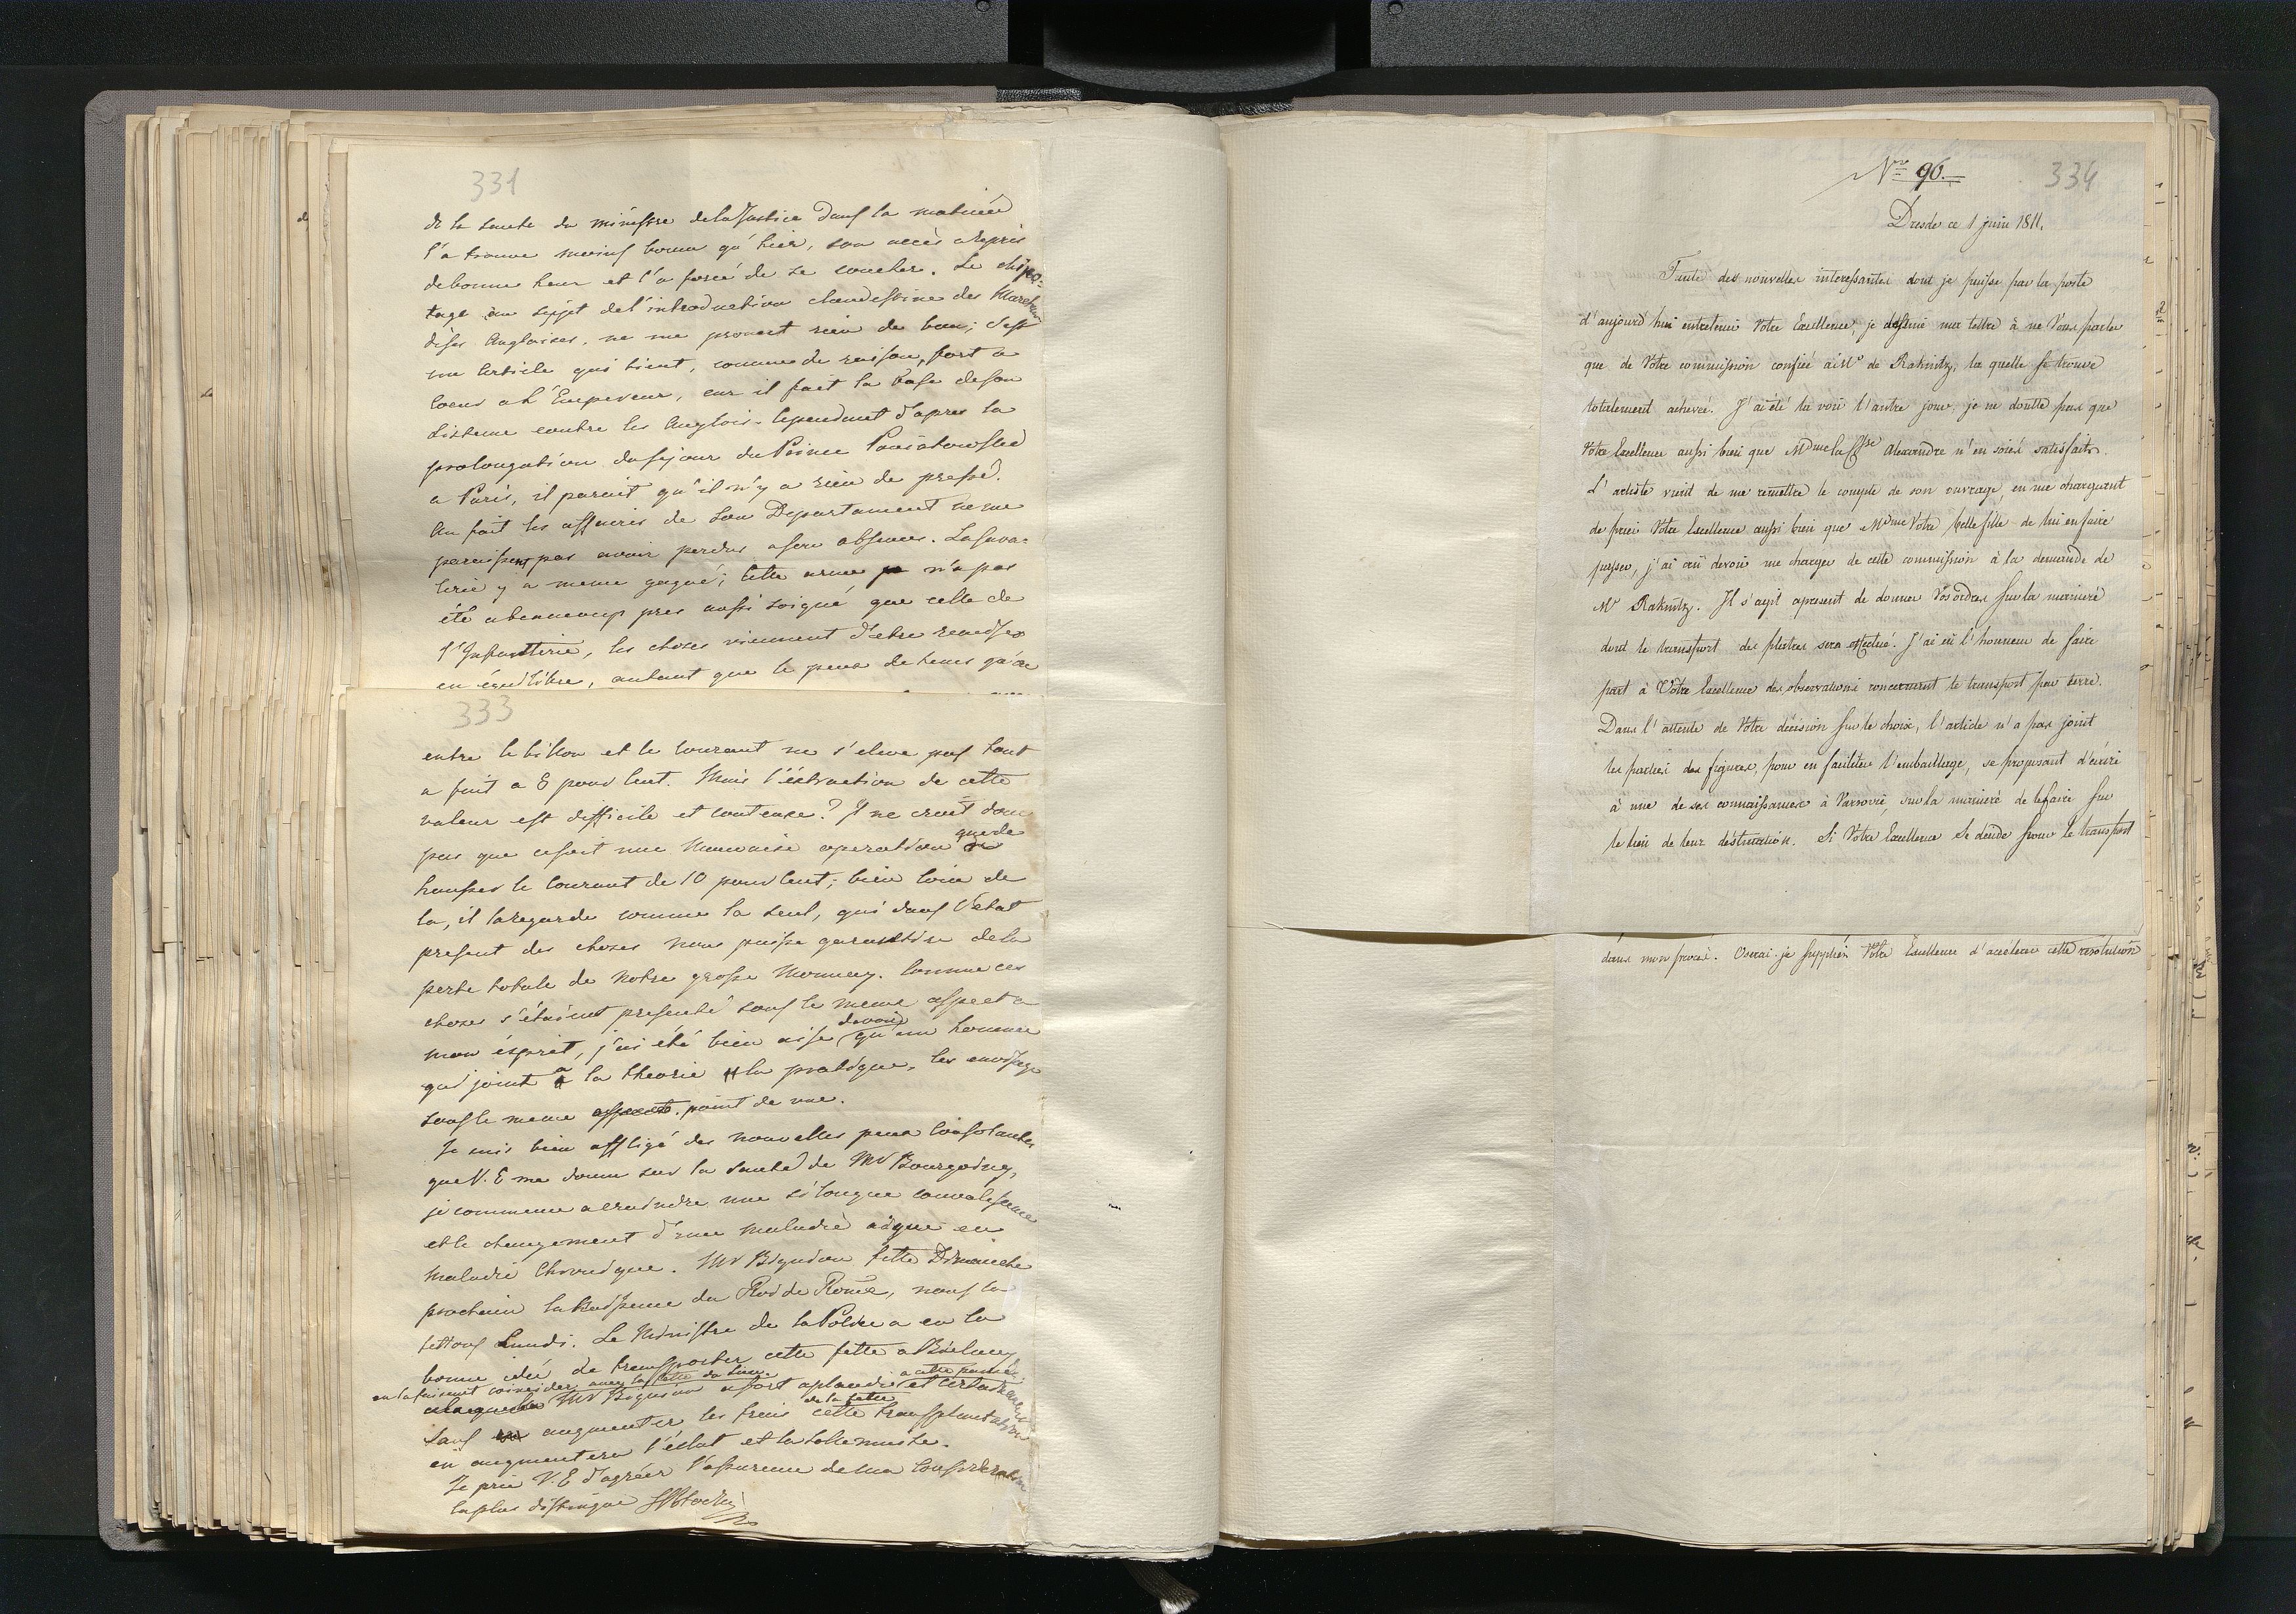 331
de la sante du ministre de la Justice dans la matinée
l'a trouve moins bonne qu'hier, son accès a repris
de bonne heur et l'a forcé de se coucher. Le chipo-
tage au sujet de l'introduction clandestine des Marchan
dises Anglaises, ne me promet rien de bon; c'est
un article qui tient, comme de raison, fort a
coeur a l'Empereur, car il fait la base de son
Sisteme contre les Anglois. Cependant d'apres la
prolongation du sejour du Prince Poniatowski
a Paris, il parait qu'il n'y a rien de pressé.
Au fait les affaires de son Departament ne me
paraissent pas avoir perdus a son absence. La Cava-
lerie y a meme gagné; cette arme n'a pas
été a beaucoup pres aussi soigné que celle de
l'Infantterie, les choses viennent d'etre remises
en équilibre, autant que le peux de tems qu'on
333
entre le billon et le courant ne s'eleve pas tout
a fait a 8 pour Cent. Mais l'éxtraction de cette
valeur est difficile et couteuse? Il ne croit donc
pas que cesoit une Mauvaise operation que de
hausser le Courant de 10 pour Cent; bien loin de
la, il la regarde comme la seul, qui dans l'état
present des choses nous puisse garantire de la
perte totale de Notre grosse Monnay. Comme ces
choses s'étaient presenté sous le meme aspect a
mon ésprit, j'ai été bien aise devoir qu'un homme
qui joint a la theorie la pratique, les envisage
sous le meme aspect point de vue.
Je suis bien affligé des nouvelles peux Consolantes
que V. E me donne sur la Santé de Mr Bourgoing,
je commence a craindre une si longue convalescence
et le changement d'une maladie aigue en
maladie Chronique. Mr Bignion fette Dimanche
prochain la Naissance du Roi de Rome, nous la
fettons Lundi. Le Ministre de la Police a eu la
bonne idée de transporter cette fette a Bielany
en la faisant coincider avec la fette du lieu a cette pensée
Mr Bignion a fort aplaudi et certainement
sans augmenter les frais de la fette cette transplantation
en augmentera l'éclat et la solennité.
Je prie V. E d'agréer l'assurence de ma Consideration
la plus distinguée
Nro 96.
334
Dresde ce 1 juin 1811.
Faute des nouvelles interessantes dont je puisse par la poste
d'aujourd'hui entretenir Votre Excellence, je destine ma lettre à ne Vous parler
que de Votre commission confiée à Mr de Raknitz, la quelle se trouve
totalement achevée. J'ai été la voir l'autre jour, je ne doutte pas que
Votre Excellence aussi bien que Mdme la Csse Alexandre n'en soiés satisfaits.
L'artiste vient de me remettre le compte de son ouvrage, en me chargeant
de prier Votre Excellence aussi bien que Mdme Votre belle fille de lui en faire
passer, j'ai crû devoir me charger de cette commission à la demande de
Mr Raknitz. Il s'agit apresent de donner Vos ordres sur la manieré
dont le transport des platres sera effectué. J'ai eû l'honneur de faire
part à Votre Excellence des observations concernent le transport par terre.
Dans l'attente de Votre décision sur le choix, l'artiste n'a pas joint
les parties des figures, pour en faciliter l'emballage, se proposant d'écrire
à une de ses connaissances à Varsovie, sur la manieré de le faire sur
le lieu de leur déstination. Si Votre Excellence se décide pour le transport
Oserai-je supplier Votre Excellence d'accélérer cette résolution